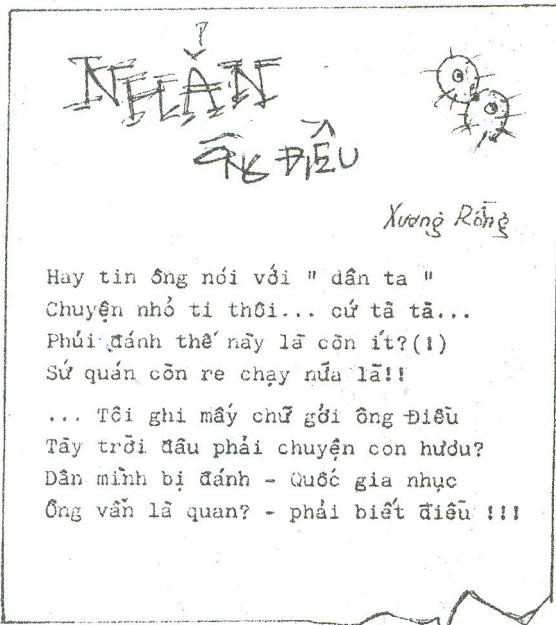 NHẮN
ÔNG ĐIỀU
Xương Rồng
Hay tin ông nói với " dân ta "
Chuyện nhỏ ti thôi... cứ tà tà...
Phủi đánh thế này là còn ít?(!)
Sứ quán còn re chạy nữa là!!
... Tôi ghi mấy chữ gởi ông Điều
Tây trời đâu phải chuyện con hươu?
Dân mình bị đánh - Quốc gia nhục
Ông vẫn là quan? - phải biết điều !!!